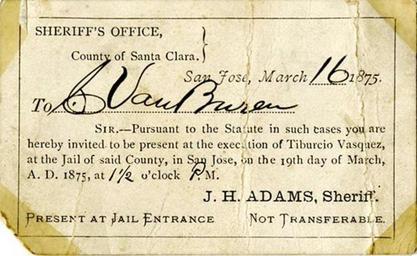 SHERIFF'S OFFICE,
County of Santa Clara.
San Jose, March 16 1875.
To C Van Buren
SIR.—Pursuant to the Statute in such cases you are
hereby invited to be present at the execution of Tiburcio Vasquez,
at the Jail of said County, in San Jose, on the 19th day of March,
A. D. 1875, at 1½ o'clock P. M.
J. H. ADAMS, Sheriff.
PRESENT AT JAIL ENTRANCE NOT TRANSFERABLE.